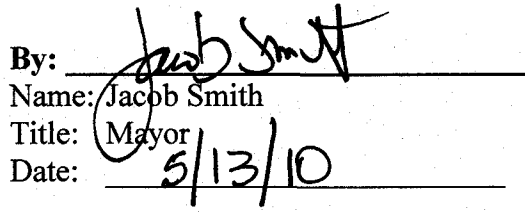 By: Jacob Smith
Name: Jacob Smith
Title: Mayor
Date: 5/13/10